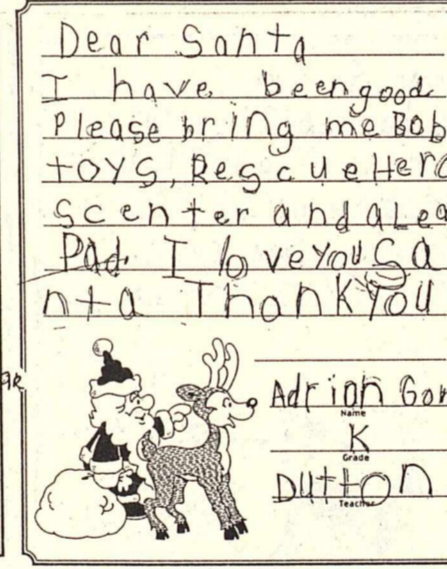 Dear Santa
I have been good
Please bring me Bob
toys, Rescue Hero
scenter and a Lea
Pad. I love you Sa
nta Thank You
Adrion Gon
Name
K
Grade
Dutton
Teacher